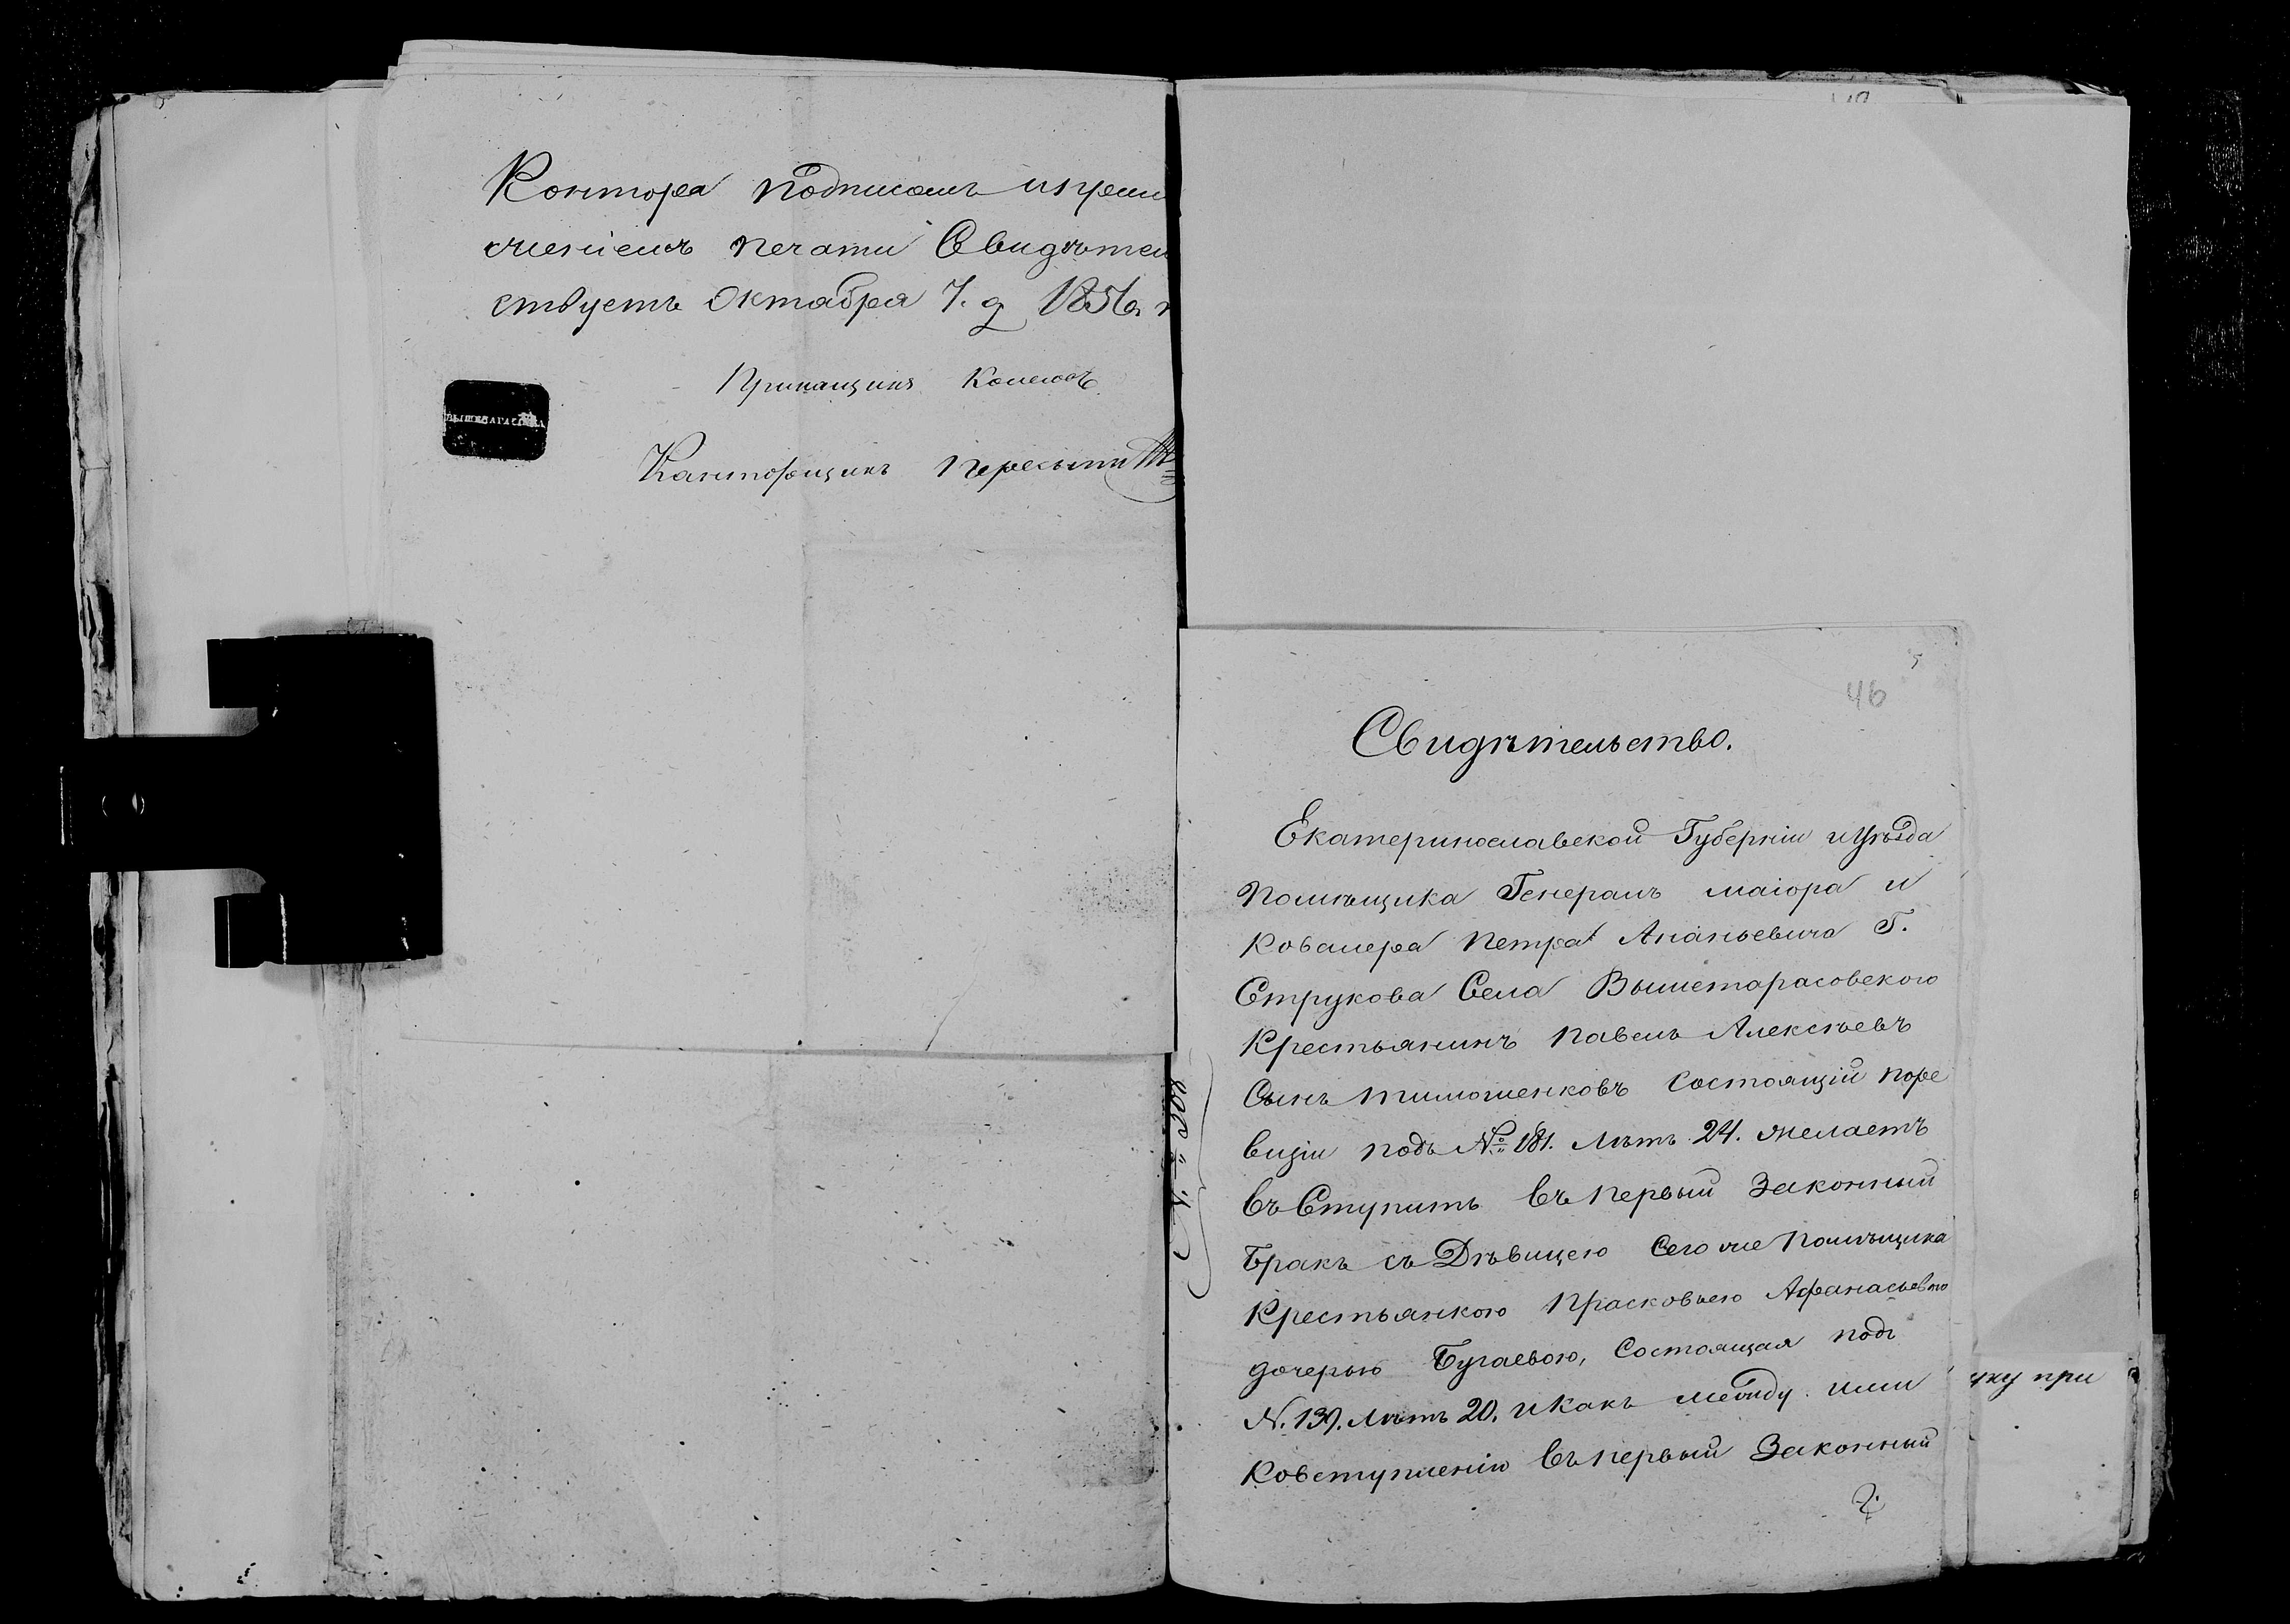 Контора подписомъ и при
ложенiемъ печати Свидѣтел
ствуетъ Октабря 7. д 1856. г
Прикащикъ
Канторщикъ
46
Свидѣтельство.
Екатеринославской Губернiи и Уѣзда
Помѣщика Генералъ маiора и
Ковалера Петра Ананьевича Г.
Струкова Села Вышетарасовского
Крестьянинъ Павелъ Алексѣевъ
Сынъ Тимошенковъ Состоящiй поре
визiи подъ №181. Лѣтъ 24. желаетъ
въ Ступить въ первый Законный
Бракъ съ Дѣвицею Сего же Помѣщика
Крестьянкою Прасковьею Афанасьевою
дочерью Бугаевою, Состоящая подъ
N. 139. Лѣтъ 20. и какъ между ими
Ковступленiю въ первый Законный
ку при